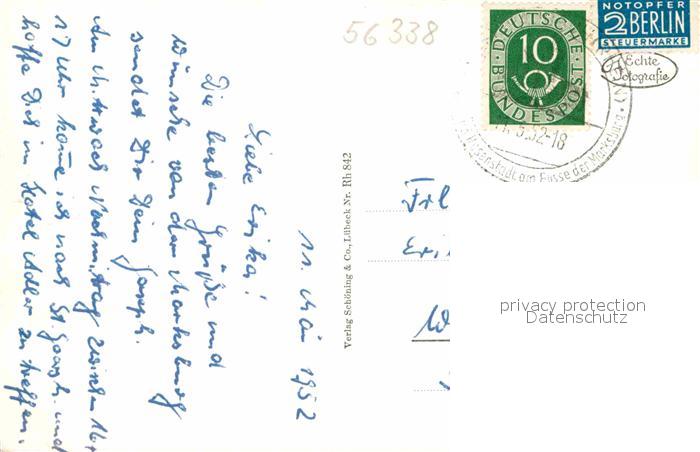 56338
DEUTSCHE
10
BUNDESPOST
NOTOPFER
2 BERLIN
STEUERMARKE
Echte
Fotografie
5.52-18
am Fusse der Marksburg
11. Mai 1952
Liebe Erika!
Die besten Grüße und
Wünsche von der Marksburg
sendet Dir Dein Joseph.
Am Mittwoch Nachmittag zwischen 16 +
17 Uhr komme ich nach St. Goarsh. und
hoffe Dich im Hotel Adler zu treffen.
Verlag Schöning & Co., Lübeck Nr. Rh 842
Frl
Eri
W
privacy protection
Datenschutz